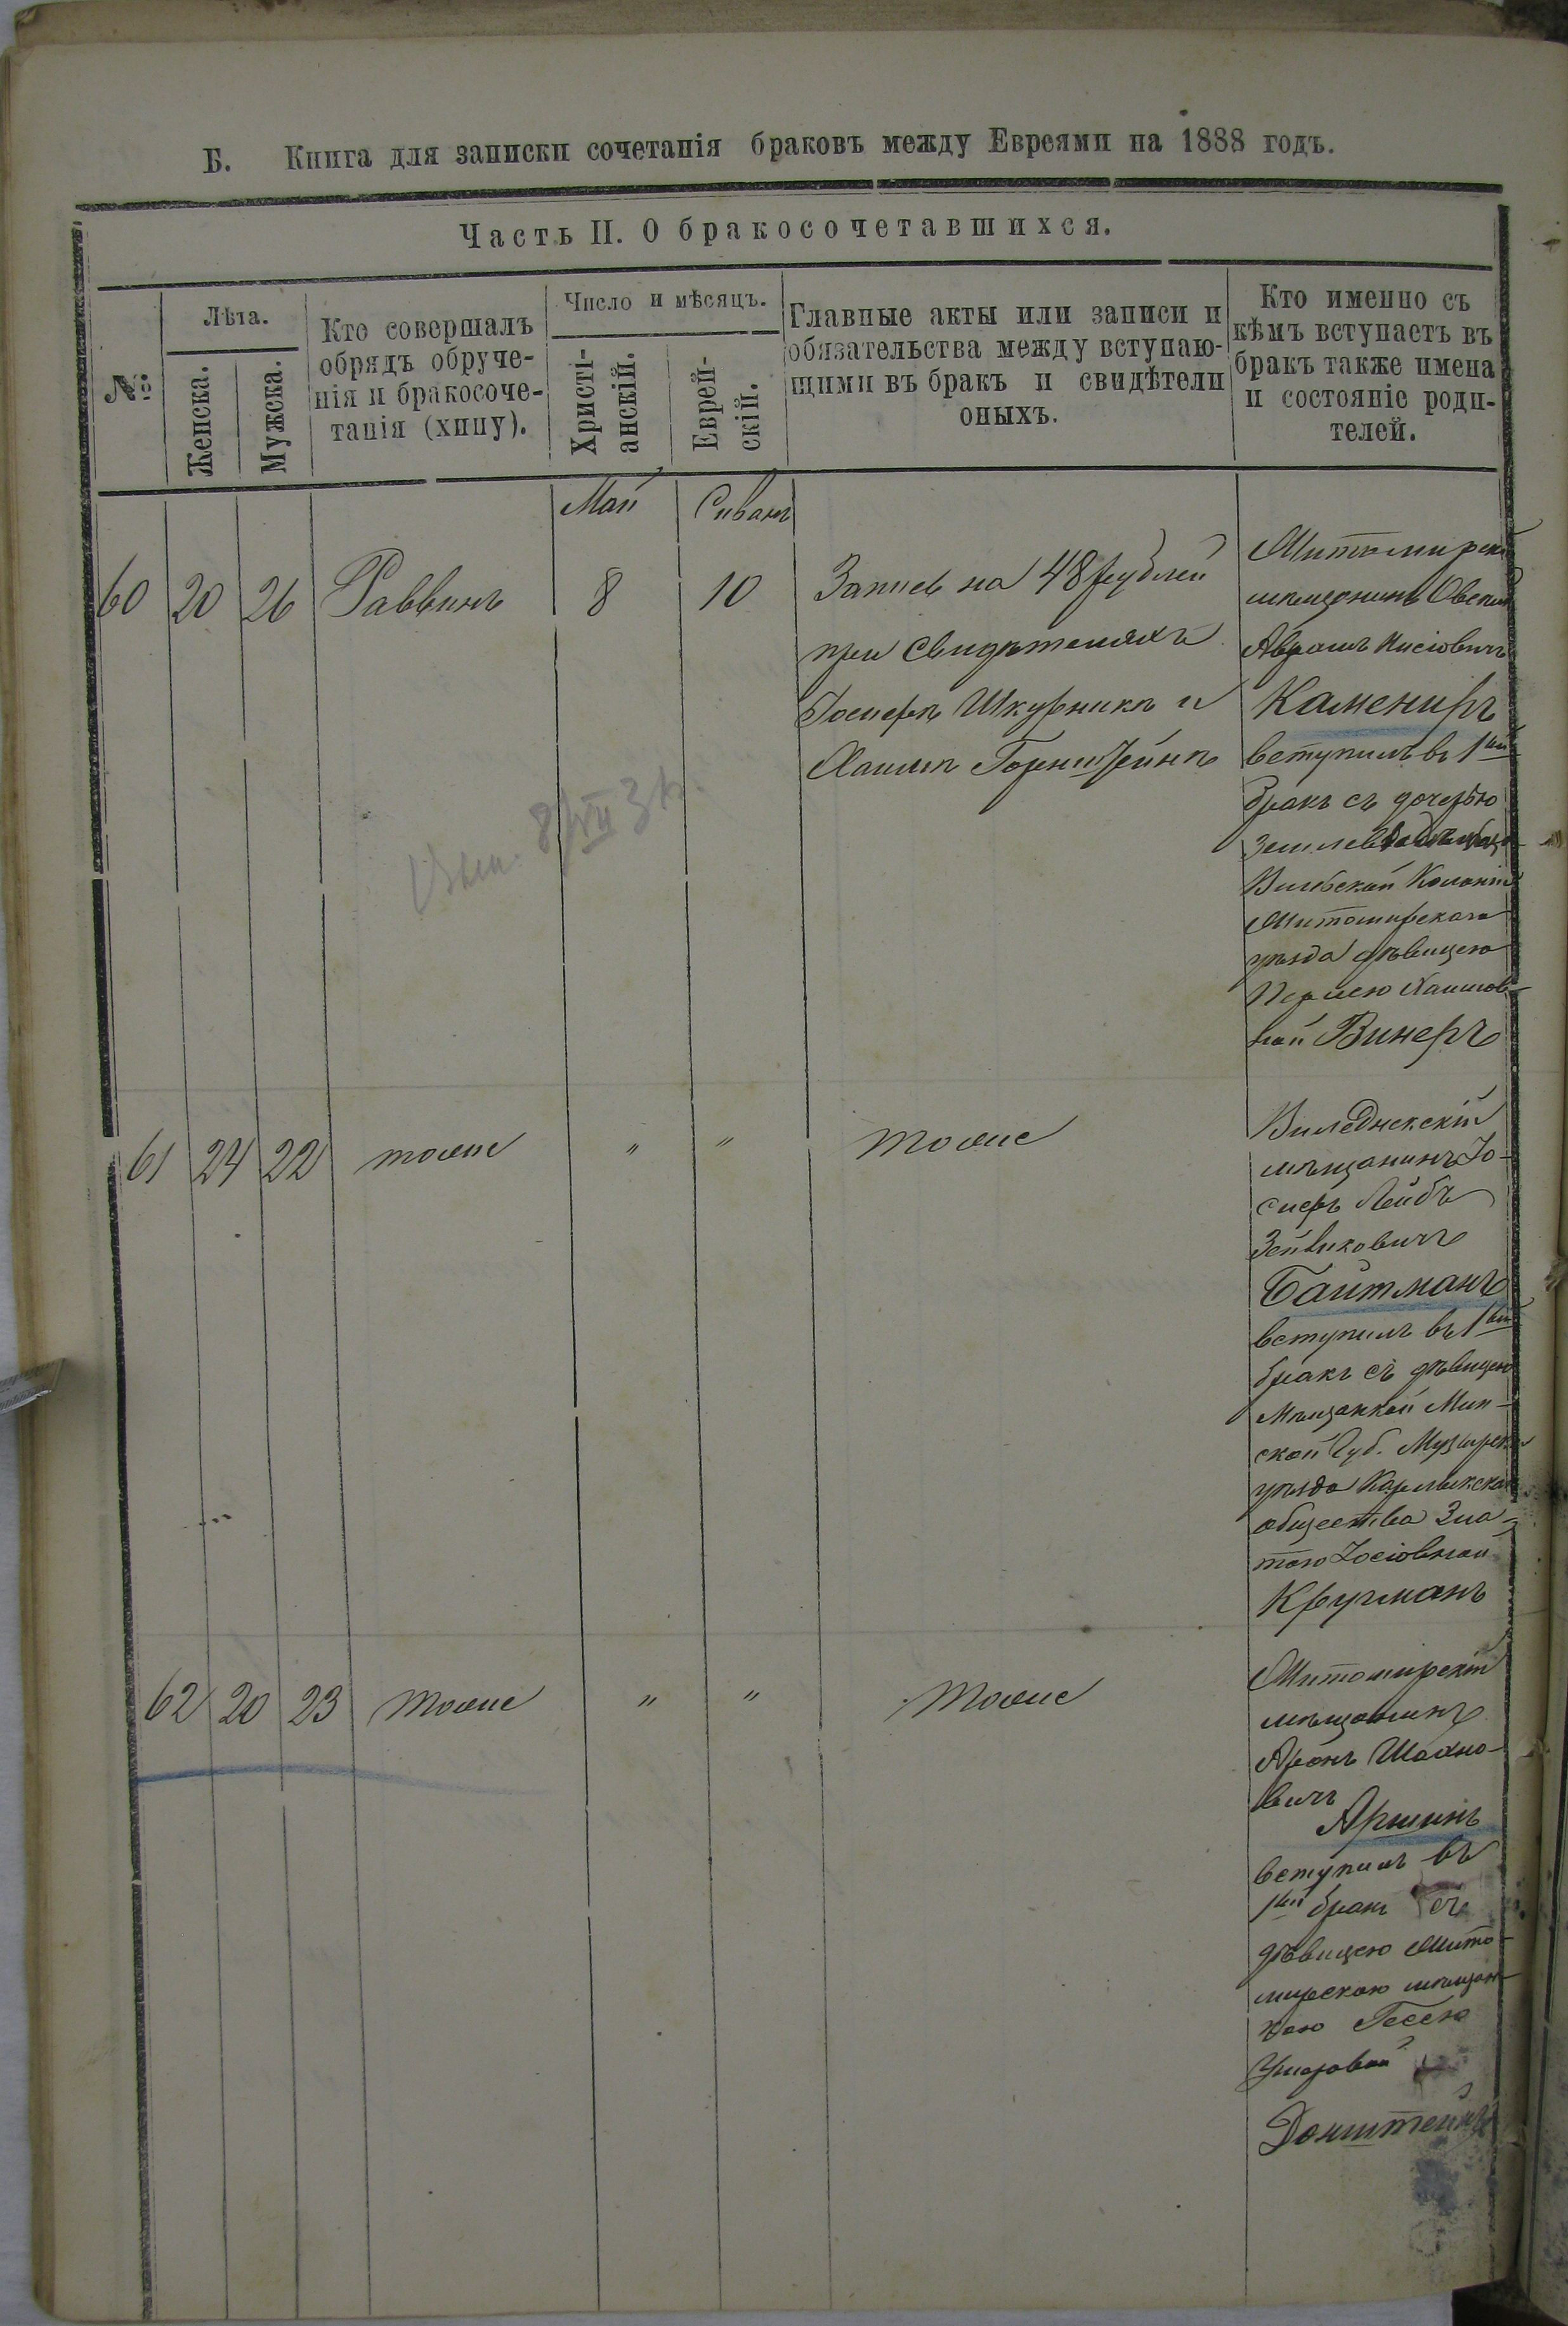 Б. Книга для записки сочетанія браковъ между Евреями на 1888 годъ.
Часть II. О бракосочетавшихся.
№
Лѣта.
Женска.
Мужска.
Кто совершалъ
обрядъ обруче-
нія и бракосоче-
танія (хипу).
Число и мѣсяцъ.
Христі-
анскій.
Еврей-
скій.
Главные акты или записи и
обязательства между вступаю-
щими въ бракъ и свидѣтели
оныхъ.
Кто именно съ
кѣмъ вступаетъ въ
бракъ также имена
и состояніе роди-
телей.
Май Сиванъ
60 20 26 Раввинъ 8 10
Запись на 48 рублей
при свидѣтеляхъ
Іосифъ Шкурникъ и
Хаимъ Горнштейнъ
Житомирскій
мѣщанинъ
Аврамъ
Камениръ
вступилъ въ 1ый
бракъ съ дочерью
колоніи
Житомирскаго
уѣзда дѣвицею
Перлею Хаимов-
ной Винеръ
61 24 22 тоже " " тоже
Виледнекскій
мѣщанинъ Іо-
сифъ Лейбъ
Зейликовичъ
Байтманъ
вступилъ въ 1ый
бракъ съ дѣвицею
мѣщанкой Мин-
ской Губ.
уѣзда
общества Зла-
тою Іосіовной
Кругманъ
62 20 23 тоже " " тоже
Житомирскій
мѣщанинъ
Аронъ Шахно-
вичъ
Аршинъ
вступилъ въ
1ый бракъ съ
дѣвицею Жито-
мирскою мѣщан-
кою Гессею
Донштейнъ